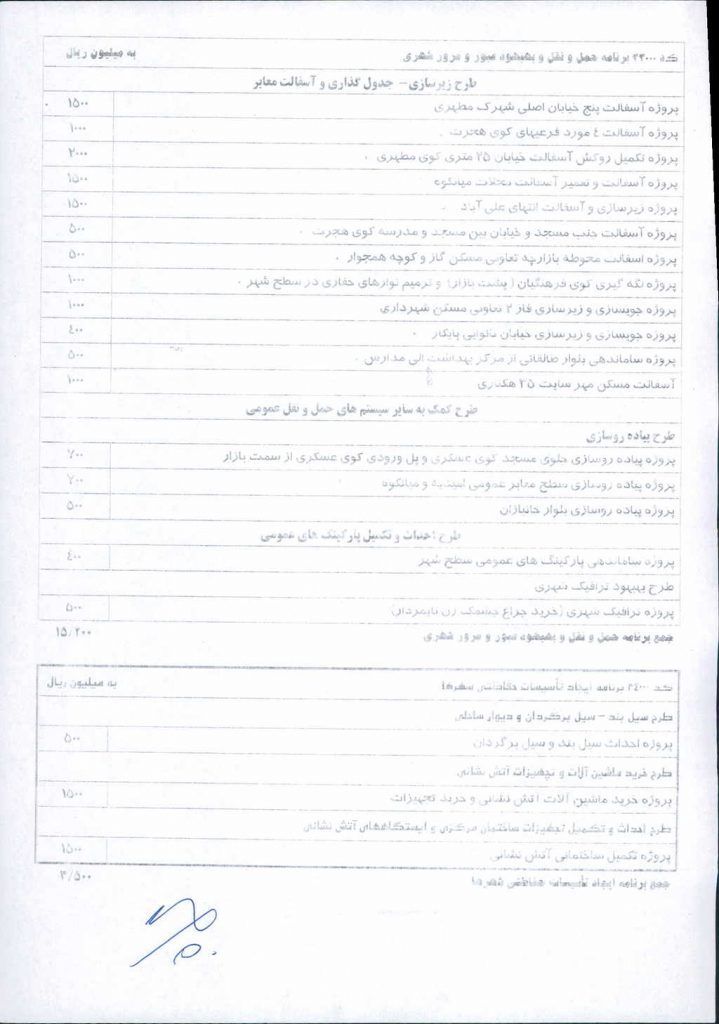 کد ۲۳۰۰۰ برنامه حمل و نقل و بهبود عبور و مرور شهری به میلیون ریال
طرح زیرسازی - جدول گذاری و آسفالت معابر
پروژه آسفالت پنج خیابان اصلی شهرک مطهری ۱۵۰۰
پروژه آسفالت ٤ مورد فرعیهای کوی هجرت . ۱۰۰۰
پروژه تکمیل روکش آسفالت خیابان ۲۵ متری کوی مطهری . ۲۰۰۰
پروژه آسفالت و تعمیر آسفالت محلات میانکوه ۱۵۰۰
پروژه زیرسازی و آسفالت انتهای علی آباد . ۱۵۰۰
پروژه آسفالت جنب مسجد و خیابان بین مسجد و مدرسه کوی هجرت . ۵۰۰
پروژه آسفالت محوطه بازارچه تعاونی مسکن گاز و کوچه همجوار . ۵۰۰
پروژه لکه گیری کوی فرهنگیان (پشت بازار) و ترمیم نوارهای حفاری در سطح شهر . ۱۰۰۰
پروژه جویسازی و زیرسازی فاز ۲ تعاونی مسکن شهرداری ۱۰۰۰
پروژه جویسازی و زیرسازی خیابان نانوایی پایکار . ٤۰۰
پروژه ساماندهی بلوار طالقانی از مرکز بهداشت الی مدارس . ۵۰۰
آسفالت مسکن مهر سایت ۲۵ هکتاری ۱۰۰۰
طرح کمک به سایر سیستم های حمل و نقل عمومی
طرح پیاده روسازی
پروژه پیاده روسازی جلوی مسجد کوی عسکری و پل ورودی کوی عسکری از سمت بازار ۷۰۰
پروژه پیاده روسازی سطح معابر عمومی امیدیه و میانکوه ۷۰۰
پروژه پیاده روسازی بلوار جانبازان ۵۰۰
طرح احداث و تکمیل پارکینگ های عمومی
پروژه ساماندهی پارکینگ های عمومی سطح شهر ٤۰۰
طرح بهبود ترافیک شهری
پروژه ترافیک شهری (خرید چراغ چشمک زن تایمردار) ۵۰۰
جمع برنامه حمل و نقل و بهبود عبور و مرور شهری ۱۵/۲۰۰
کد ۲٤۰۰۰ برنامه ایجاد تأسیسات حفاظتی شهرها به میلیون ریال
طرح سیل بند - سیل برگردان و دیوار ساحلی
پروژه احداث سیل بند و سیل برگردان ۵۰۰
طرح خرید ماشین آلات و تجهیزات آتش نشانی
پروژه خرید ماشین آلات آتش نشانی و خرید تجهیزات ۱۵۰۰
طرح احداث و تکمیل تجهیزات ساختمان مرکزی و ایستگاههای آتش نشانی
پروژه تکمیل ساختمانی آتش نشانی ۱۵۰۰
جمع برنامه ایجاد تأسیسات حفاظتی شهرها ۳/۵۰۰